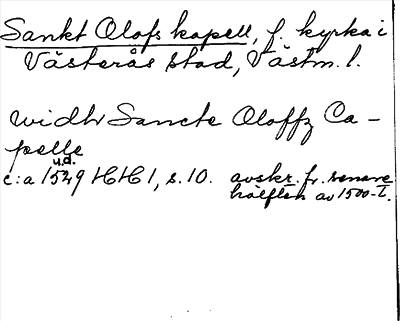 Sankt Olofs kapell, f. kyrka i
Västerås stad, Västm. l.
widh Sancte Oloffz Ca-
pelle
u.d.
c:a 1549 HH 1, s. 10. avskr. fr. senare
hälften av 1500-t.